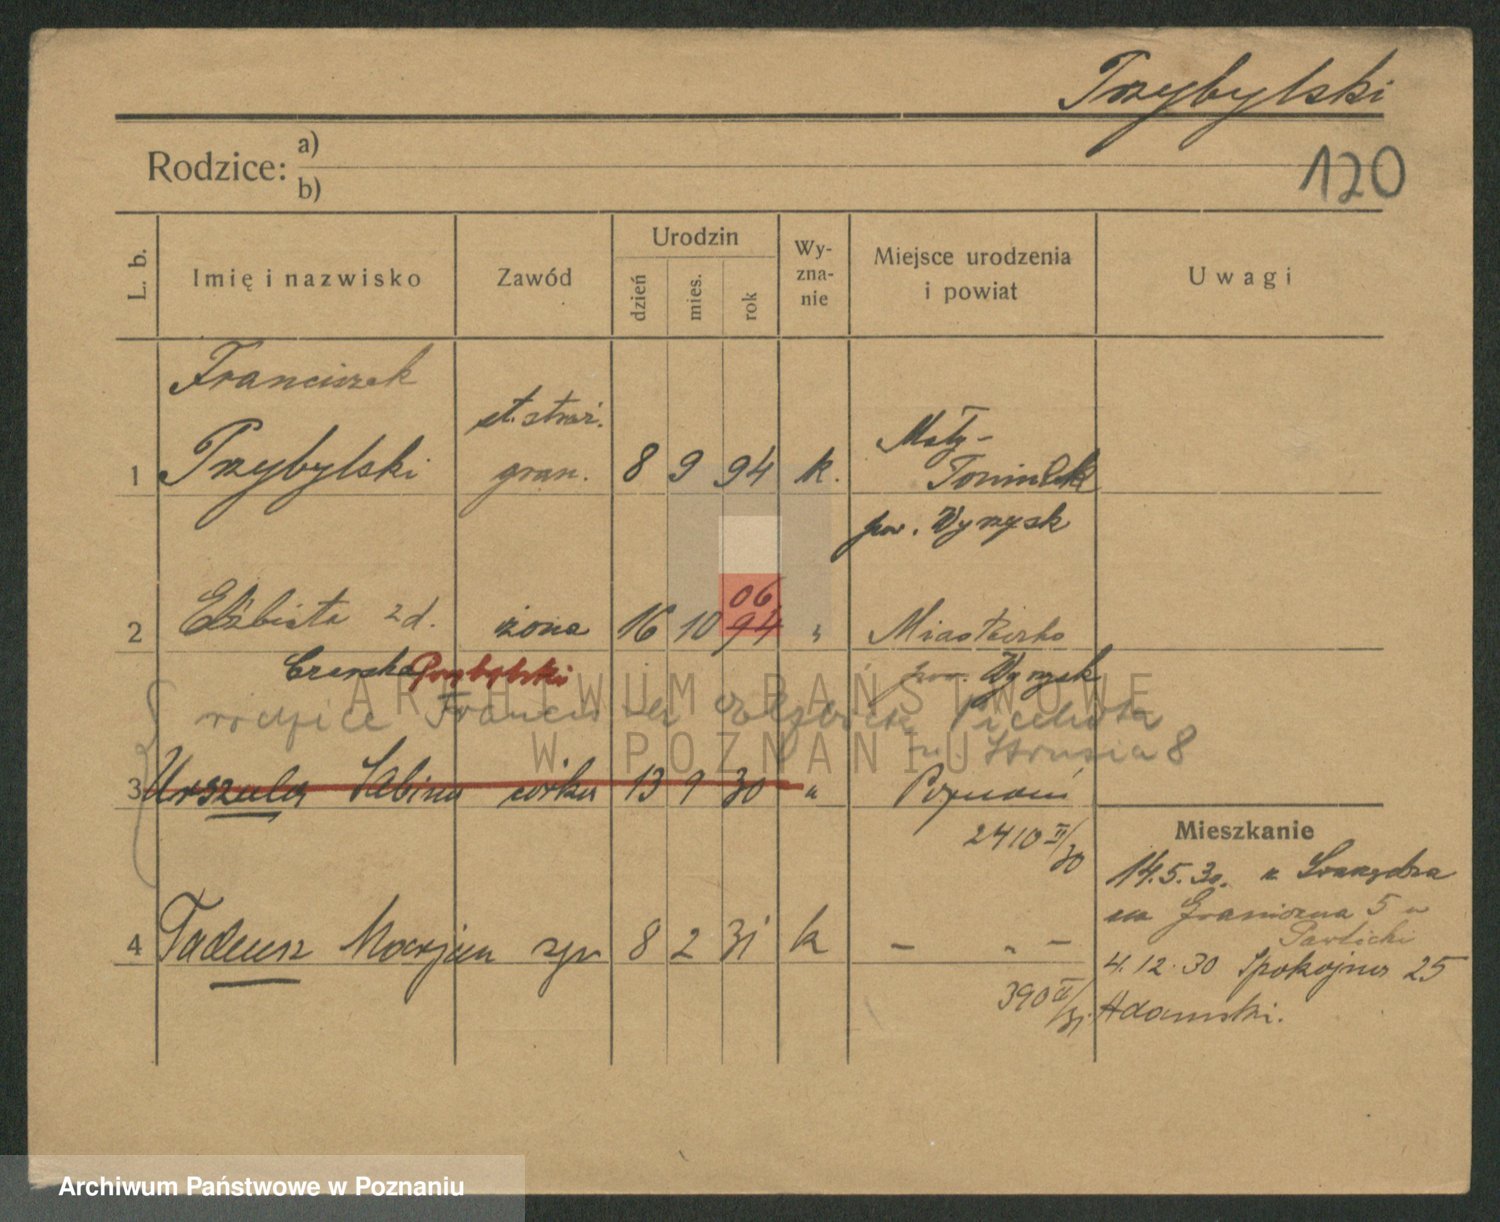 Przybylski
120
Rodzice: a)
b)
L. b. Imię i nazwisko Zawód Urodzin dzień mies. rok Wyznanie Miejsce urodzenia i powiat Uwagi
Franciszek
st. straż.
Mały-
1 Przybylski gran. 8 9 94 k. Tominek
pow. Wyrzysk
06
2 Elżbieta zd. żona 16 10 94 " Miasteczko
Czerska Przybylski pow. Wyrzysk
ARCHIWUM PAŃSTWOWE
rodzice Franciszek Elżbieta
W POZNANIU
ul. Strusia 8
3 Urszula Albina córka 13 9 30 " Poznań
2410 II/30
Mieszkanie
14.5.30. z Swarzędza
na Graniczna 5 u
4 Tadeusz Marjan syn 8 2 31 k - " -
4.12.30 Spokojna 25
390 II/31
Adamski.
Archiwum Państwowe w Poznaniu